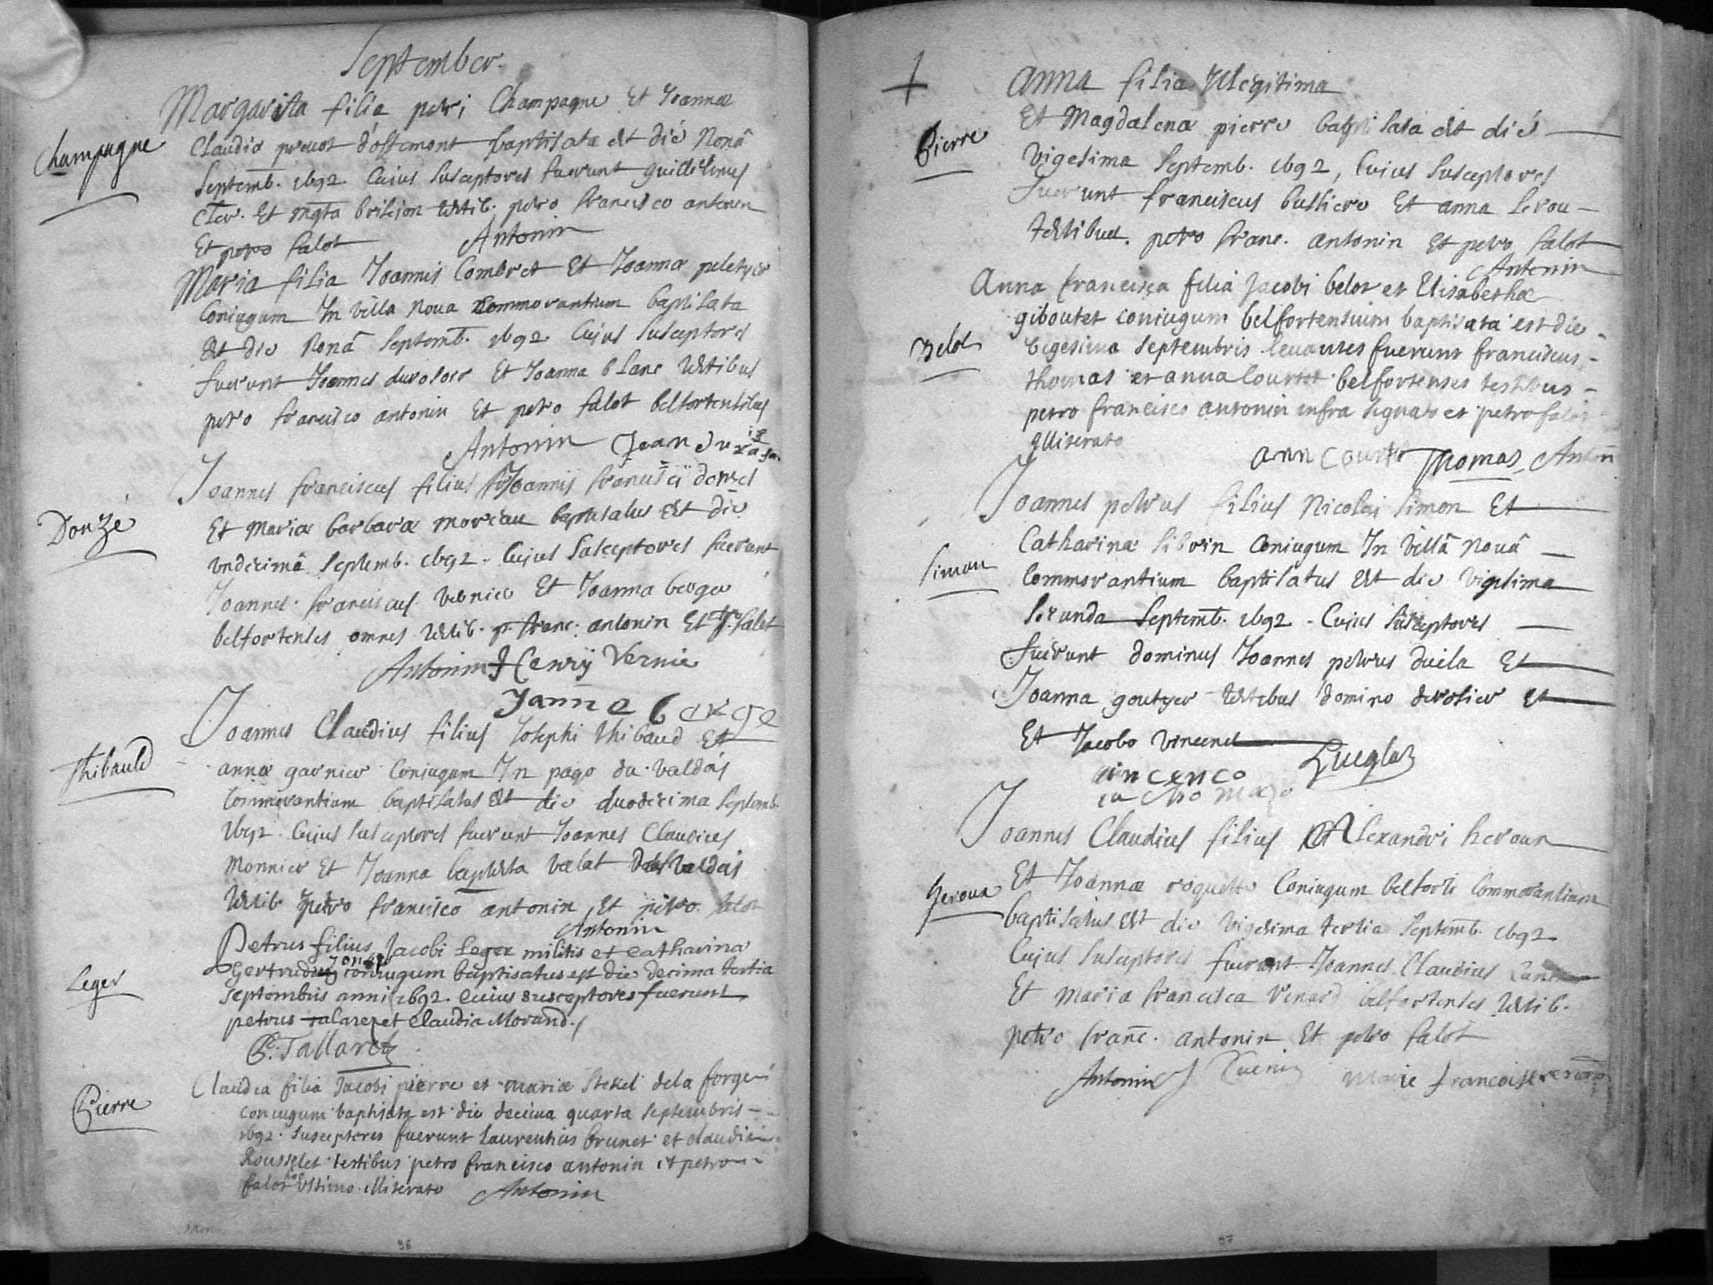 September.
Margarita filia petri Champagne Et Joannæ
Champagne
Claudiæ prevot d'offemont baptisata est die Nonâ
Septemb. 1692. Cuius Susceptores fuerunt guillelmus
Et mgta brision testib. petro francisco antonin
Et petro falot
Antonin
Maria filia Joannis Combret Et Joannæ peletier
Coniugum In villa Nova Commorantium baptisata
Est die Nonâ Septemb. 1692 Cujus Susceptores
fuerunt Joannes Et Joanna blanc testibus
petro francisco antonin Et petro falot belfortensibus
Antonin Jean
Joannes franciscus filius Joannis francisci donzel
Donzé
Et Mariæ barbaræ moreau baptisatus Est die
undecimâ Septemb. 1692. Cujus Susceptores fuerunt
Joannes franciscus vernier Et Joanna berger
belfortenses omnes testib. p. franc. antonin Et p. falot
Antonin Henrÿ Vernie
Janne berge
Joannes Claudius filius Josephi thibaud Et
Thibauld
annæ garnier Coniugum In pago du valdois
Commorantium baptisatus Est die duodecima Septemb.
1692. Cujus susceptores fuerunt Joannes Claudius
Monnier Et Joanna baptista valdois
testib petro francisco antonin Et petro falot
Antonin
Petrus filius Jacobi Leger militis et Catharina
Gertrudis coniugum baptisatus est die decima tertia
Leger
Septembris anni 1692. Cuius susceptores fuerunt
petrus et Claudia Morand.
P: Tallarez
Claudia filia Jacobi pierre et mariæ Stekel dela forge
Pierre
coniugum baptisata est die decima quarta septembris
1692. susceptores fuerunt laurentius brunet et claudia
Rousselet testibus petro francisco antonin et petro
falot ultimo illiterato Antonin
96
anna filia Illegitima
Et Magdalenæ pierre baptisata est die
Pierre
Vigesima Septemb. 1692, Cuius Susceptores
fuerunt franciscus Et anna
testibus. petro franc. antonin Et petro falot
Antonin
Anna francisca filia Jacobi belot et Elisabethæ
giboutet coniugum belfortensium baptisata est die
Belot
vigesima septembris levantes fuerunt franciscus
thomas et anna Courtet belfortenses testibus
petro francisco antonin infra signato et petro falot
illiterato
ann Courte Thomas Antoni
Joannes petrus filius Nicolai Simon Et
Catharinæ Coniugum In villâ Novâ
Simon
Commorantium baptisatus Est die vigesima
secunda Septemb. 1692. Cuius Susceptores
fuerunt dominus Joannes petrus Et
Joanna testibus domino Et
Et Jacobo vincent
Joannes Claudius filius Alexandri heroux
Heroux
Et Joannæ Coniugum belforti Commorantium
baptisatus Est die vigesima tertia Septemb. 1692
Cujus Susceptores fuerunt Joannes Claudius
Et Maria francisca venard belfortenses testib.
petro franc. antonin Et petro falot
Antonin Marie francoise
97